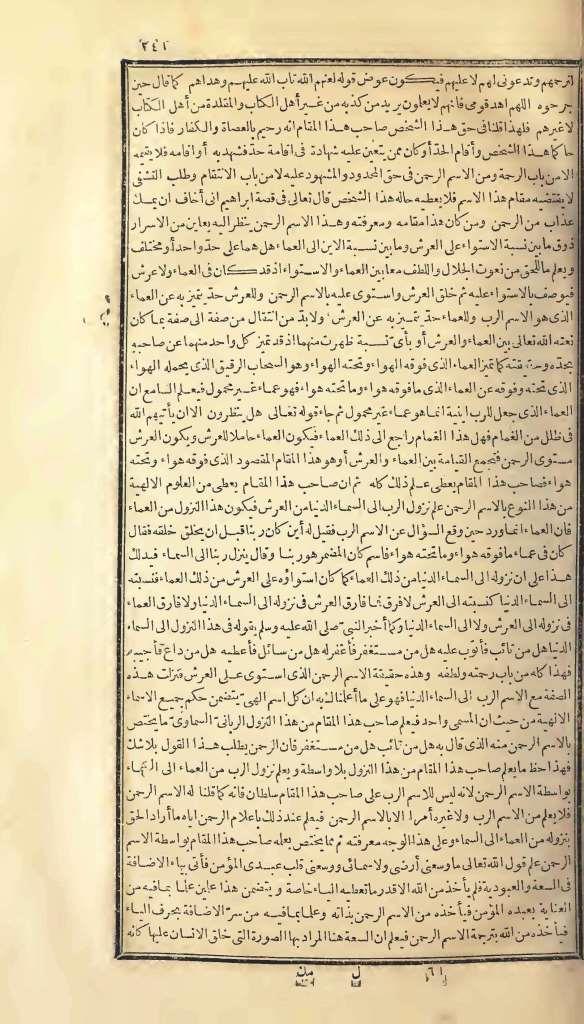 ٢٤١
لترحمهم وتدعونى لهم لا عليهم فيكون عوض قوله لعنهم الله تاب الله عليهم وهداهم كما قال حين
جرحوه اللهم اهد قومى فانهم لا يعلمون يريد من كذبه من غير أهل الكتاب والمقلدة من أهل الكتاب
لا غيرهم فلهذا قلنا فى حق هذا الشخص صاحب هذا المقام انه رحيم بالعصاة والكفار فاذا كان
حاكما هذا الشخص وأقام الحد أو كان ممن يتعين عليه شهادة فى اقامة حد فشهد به أو أقامه فلا يقيمه
الا من باب الرحمة ومن الاسم الرحمن فى حق المحدود والمشهود عليه لا من باب الانتقام وطلب التشفى
لا يقتضيه مقام هذا الاسم فلا يعطيه حاله هذا الشخص قال تعالى فى قصة ابراهيم انى أخاف ان يمسك
عذاب من الرحمن ومن كان هذا مقامه ومعرفته وهذا الاسم الرحمن ينظر اليه يعاين من الاسرار
ذوق ما بين نسبة الاستواء على العرش وما بين نسبة الاين الى العماء هل هما على حد واحد أو مختلف
ويعلم ما للحق من نعوت الجلال واللطف معا بين العماء والاستواء اذ قد كان فى العماء ولا عرش
فيوصف بالاستواء عليه ثم خلق العرش واستوى عليه بالاسم الرحمن وللعرش حد يتميز به عن العماء
الذى هو الاسم الرب وللعماء حد يتميز به عن العرش ولا بد من انتقال من صفة الى صفة فما كان
نعته الله تعالى بين العماء والعرش أو بأى نسبة ظهرت منهما اذ قد تميز كل واحد منهما عن صاحبه
بحده وحقيقته كما تميز العماء الذى فوقه الهواء وتحته الهواء وهو السحاب الرقيق الذى يحمله الهواء
الذى تحته وفوقه عن العماء الذى ما فوقه هواء وما تحته هواء فهو عماء غير محمول فيعلم السامع ان
العماء الذى جعل للرب اينية انما هو عماء غير محمول ثم جاء قوله تعالى هل ينظرون الا ان يأتيهم الله
فى ظلل من الغمام فهل هذا الغمام راجع الى ذلك العماء فيكون العماء حاملا للعرش ويكون العرش
مستوى الرحمن فتجمع القيامة بين العماء والعرش أو هو هذا المقام المقصود الذى فوقه هواء وتحته
هواء فصاحب هذا المقام يعطى علم ذلك كله ثم ان صاحب هذا المقام يعطى من العلوم الالهية
من هذا النوع بالاسم الرحمن علم نزول الرب الى السماء الدنيا من العرش فيكون هذا النزول من العماء
فان العماء انما ورد حين وقع السؤال عن الاسم الرب فقيل له أين كان ربنا قبل ان يخلق خلقه فقال
كان فى عماء ما فوقه هواء وما تحته هواء فاسم كان المضمر هو ربنا وقال ينزل ربنا الى السماء فيدلك
هذا على ان نزوله الى السماء الدنيا من ذلك العماء كما كان استواؤه على العرش من ذلك العماء فنسبته
الى السماء الدنيا كنسبته الى العرش لا فرق فما فارق العرش فى نزوله الى السماء الدنيا ولا فارق العماء
فى نزوله الى العرش ولا الى السماء الدنيا وكما أخبر النبى صلى الله عليه وسلم بقوله فى هذا النزول الى السماء
الدنيا هل من تائب فأتوب عليه هل من مستغفر فأغفر له هل من سائل فأعطيه هل من داع فأجيبه
فهذا كله من باب رحمته ولطفه وهذه حقيقة الاسم الرحمن الذى استوى على العرش فنزلت هذه
الصفة مع الاسم الرب الى السماء الدنيا فهو على ما أعلمناك به ان كل اسم الهى يتضمن حكم جميع الاسماء
الالهية من حيث ان المسمى واحد فيعلم صاحب هذا المقام من هذا النزول الربانى السماوى ما يختص
بالاسم الرحمن منه الذى قال به هل من تائب هل من مستغفر فان الرحمن يطلب هذا القول بلا شك
فهذا حظ ما يعلم صاحب هذا المقام من هذا النزول بلا واسطة ويعلم نزول الرب من العماء الى السماء
بواسطة الاسم الرحمن لانه ليس للاسم الرب على صاحب هذا المقام سلطان فانه كما قلنا له الاسم الرحمن
فلا يعلم من الاسم الرب ولا غيره أمرا الا بالاسم الرحمن فيعلم عند ذلك باعلام الرحمن اياه ما أراد الحق
بنزوله من العماء الى السماء وعلى هذا الوجه معرفته ثم مما يختص بعلمه صاحب هذا المقام بواسطة الاسم
الرحمن علم قول الله تعالى ما وسعنى أرضى ولا سمائى ووسعنى قلب عبدى المؤمن فأتى بياء الاضافة
فى السعة والعبودية فلم يأخذ من الله الا قدر ما تعطيه الياء خاصة ويتضمن هذا علمين علما بما فيه من
العناية بعبده المؤمن فيأخذه من الاسم الرحمن بذاته وعلما بما فيه من سر الاضافة بحرف الياء
فيأخذه من الله بترجمة الاسم الرحمن فيعلم ان السعة هنا المراد بها الصورة التى خلق الانسان عليها كانه
٦١ ل مك